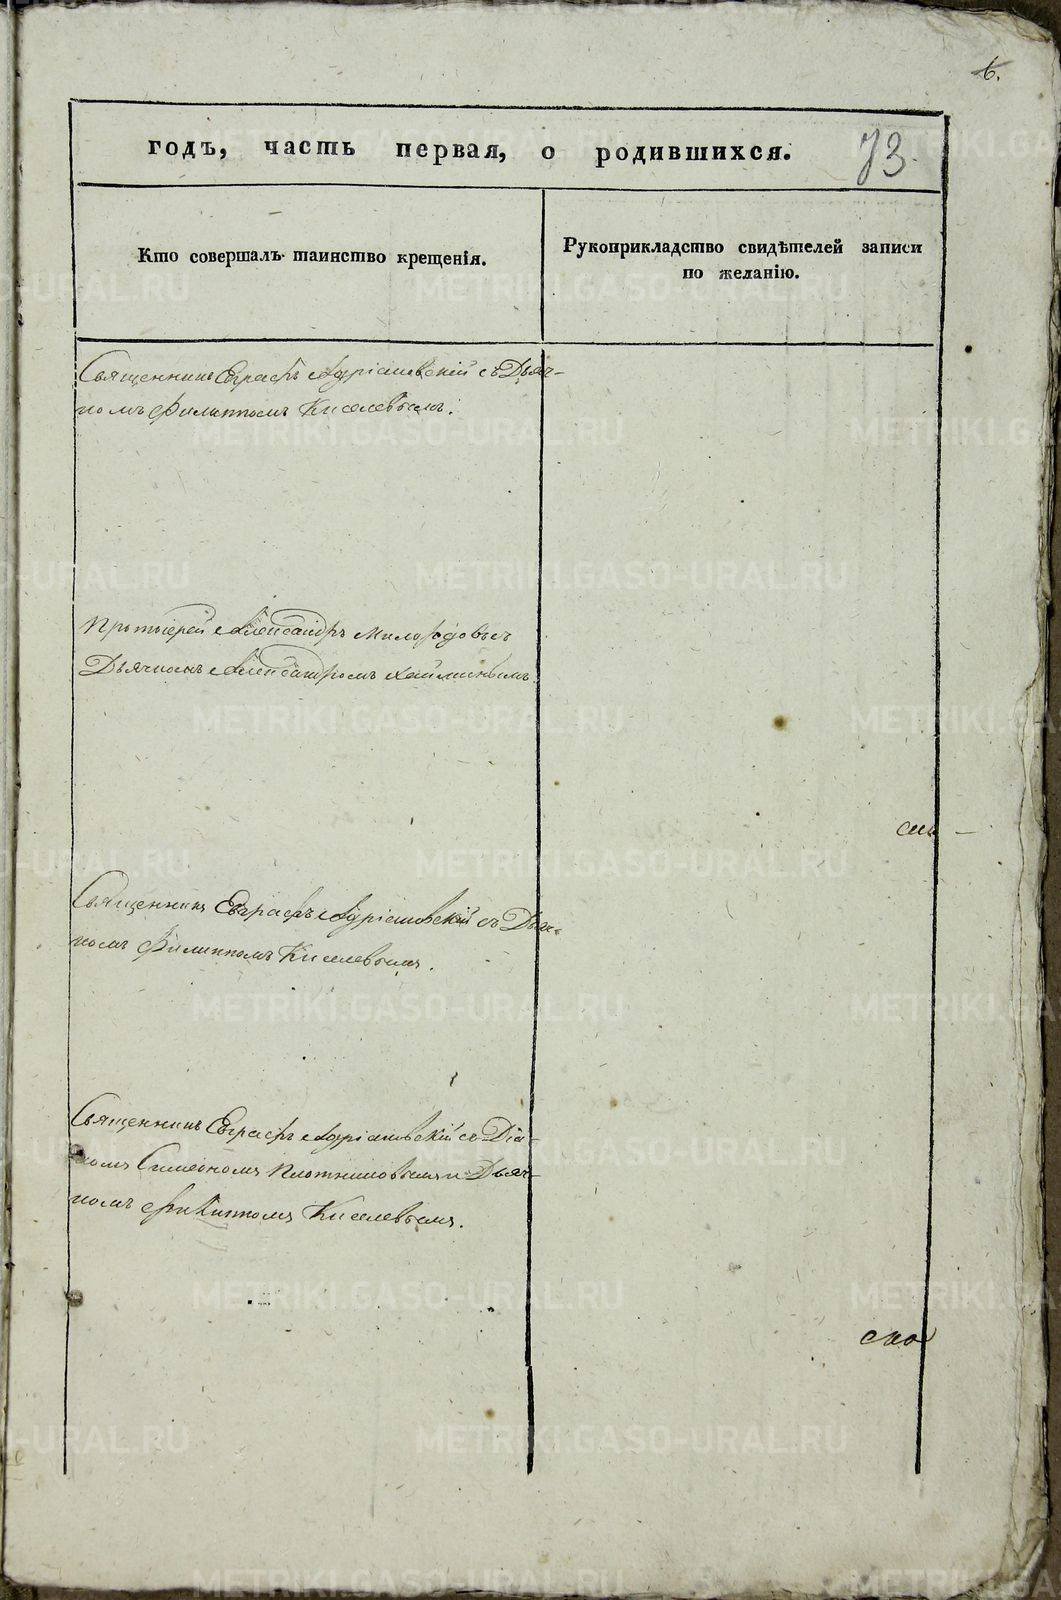 6.
годъ, часть первая, о родившихся.
73.
Кто совершалъ таинство крещенія.
Рукоприкладство свидѣтелей записи
по желанію.
Священникъ Евграфъ Адріановскій съ Дьяч-
комъ Филиппомъ Киселевымъ.
Протоіерей Александръ съ
Дьячкомъ Александромъ
Священникъ Евграфъ Адріановскій съ Дьяч-
комъ Филиппомъ Киселевымъ.
Священникъ Евграфъ Адріановскій съ Діа-
кономъ Симеономъ Плотниковымъ и Дьяч-
комъ Филиппомъ Киселевымъ.
METRIKI.GASO-URAL.RU